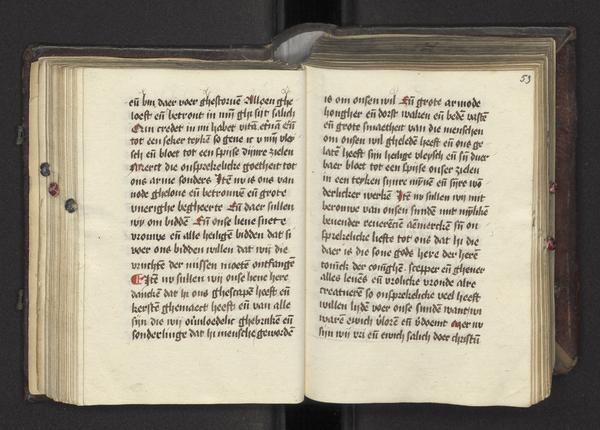 eñ bin daer voer ghestoruē Alleen ghe
loeft eñ betrout in mi ghi sijt salich
Qui credet in me habet vitā etnā Eñ
tot een seker teykē so gene ic v mijn vley
sch eñ bloet tot een spijse dijnre zielen
Merct die onsprekelicke goetheit tot
ons arme sonders Itē nv is ons van
node ghelone eñ betrouwē eñ grote
vuerighe begheerte Eñ daer sullen
wy om biddē Eñ onse lieue suete
vrouwe eñ alle heiligē bidden dat si
voer ons bidden willen dat wij die
vruchtē der missen moetē ontfangē
Itē nv sullen wij onse lieue here
danckē dat hi ons ghescapē heeft eñ
kerstē ghemaect heeft eñ van alle
sijn die wij ouloedelic ghebrukē eñ
sonderlinge dat hi mensche gewordē
53
is om onsen wil Eñ grote armode
hongher eñ dorst waken eñ bedē vastē
eñ grote smaetheit van die menschen
om onsen wil gheledē heeft eñ ons ge
latē heeft sijn heilige vleysch eñ sijn duer
baer bloet tot een spijse onser zielen
in een teyken sijnre mijnē eñ sijre wō
derlicker werkē Itē nv sullen wij mit
berouwe van onsen sundē mit
beuender reuerēcien aēmerckē sijn on
sprekelicke liefte tot ons dat hi die
daer is die sone gods here der herē
coninck der coningē scepper eñ gheuer
alles leuēs eñ vrolicke vroude alre
creaturē so onsprekelicke veel heeft
willen lijdē voer onse sundē want wi
warē ewich v'lorē eñ v'doemt Mer nv
sijn wij vri eñ ewich salich doer christū